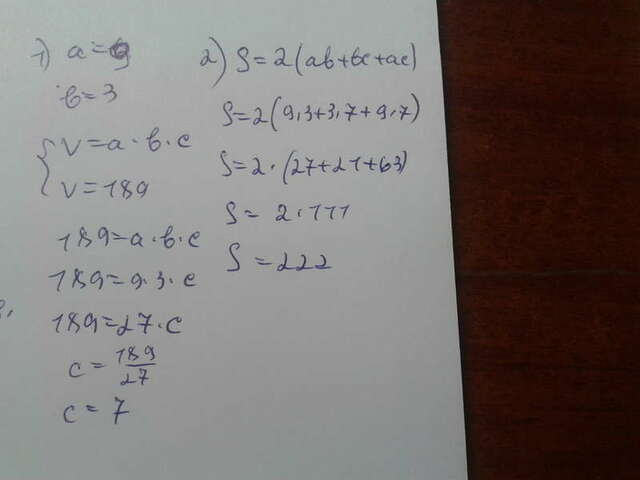 1) a = 9
b = 3
V = a · b · c
V = 189
189 = a · b · c
189 = 9 · 3 · c
189 = 27 · c
c = 189/27
c = 7
2) S = 2 (ab + bc + ac)
S = 2 (9 · 3 + 3 · 7 + 9 · 7)
S = 2 · (27 + 21 + 63)
S = 2 · 111
S = 222